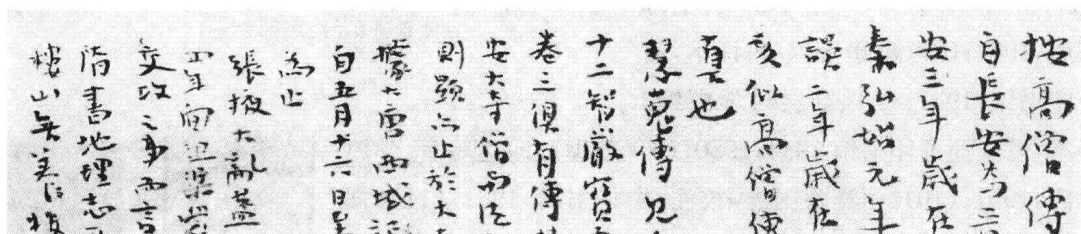 按高僧傳
自長安為二
安三年歲在
秦弘始元年
誤二年歲在
亥似高僧傳
真也
慧嵬傳見
十二智嚴寶
卷三俱有傳
安大寺僧
則顯亦止於大
據大唐西域記
自五月十六日至
為止
張掖大亂蓋
四年向
交攻之事而言
隋書地理志
樓山無